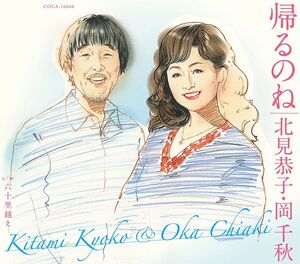 COCA-16666
帰るのね
北見恭子・岡 千秋
c/w 六十里越え
Kitami Kyoko & Oka Chiaki